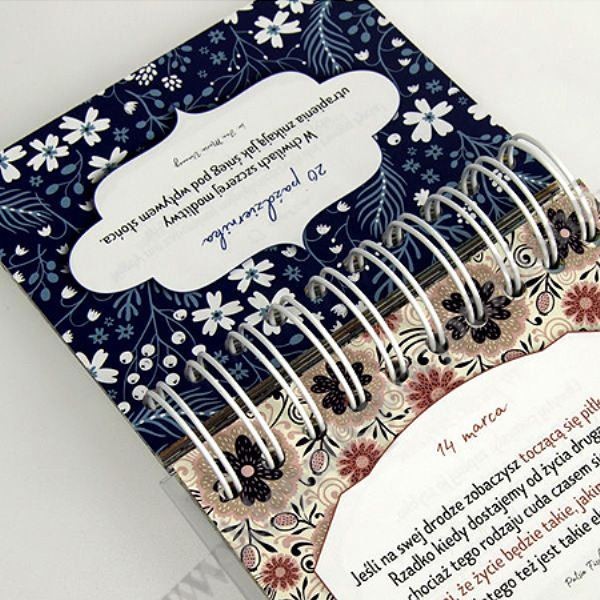 20 października
W chwilach szczerej modlitwy
utrapienia znikają jak śnieg pod wpływem słońca.
św. Jan Maria Vianney
14 marca
Jeśli na swej drodze zobaczysz toczącą się piłk
Rzadko kiedy dostajemy od życia drug
chociaż tego rodzaju cuda czasem si
że życie będzie takie, jakim
tego też jest takie